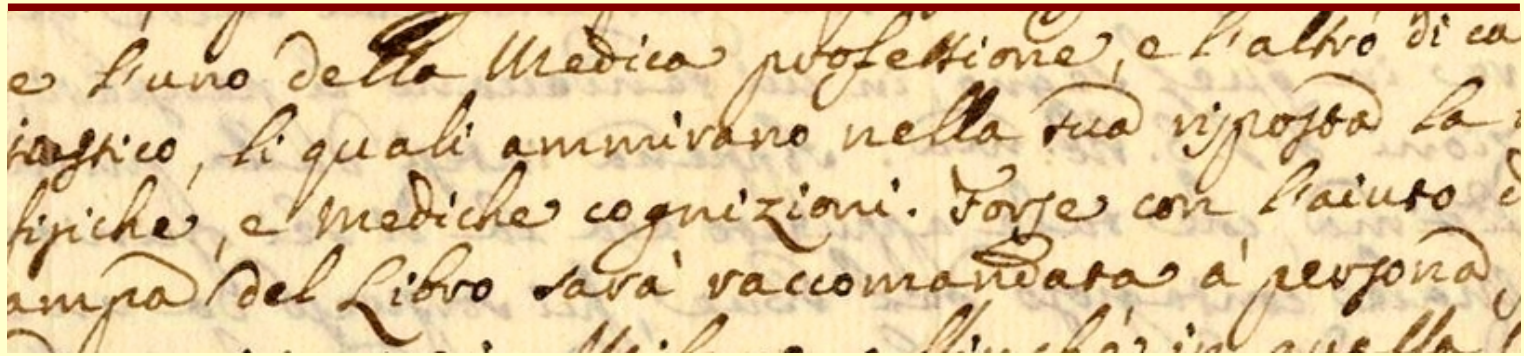 e l'uno della Medica professione, e l'altro di ca
li quali ammirano nella sua risposta la
fisiche, e mediche cognizioni. Forse con l'aiuto d
ampa del Libro sarà raccomandata à persona
in quella